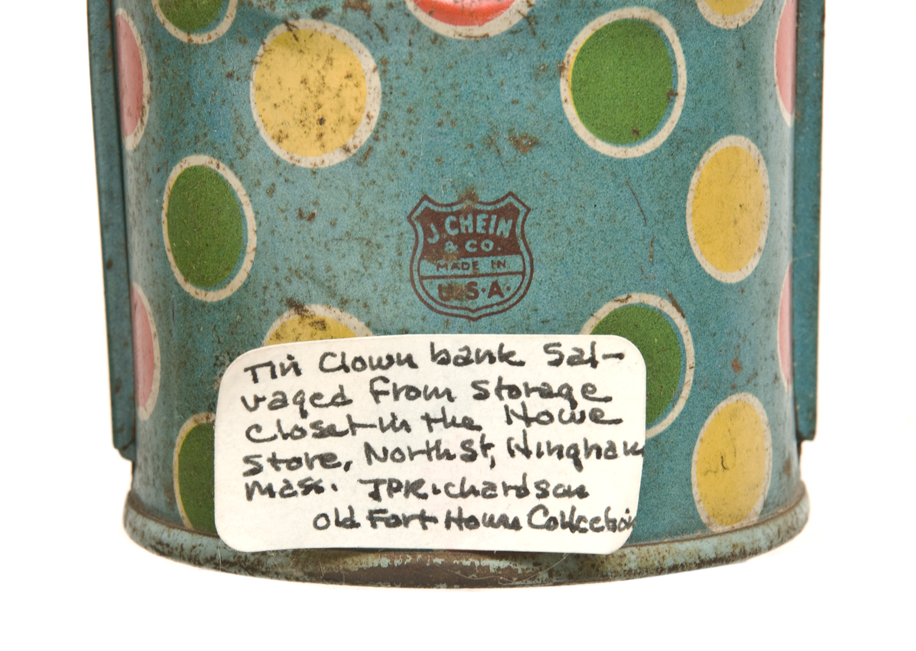 J. CHEIN
& CO.
MADE IN
U.S.A.
Tin Clown bank Sal-
vaged from storage
closet in the Howe
Store, North St, Hingham
Mass. JPRichardson
Old Fort House Collection